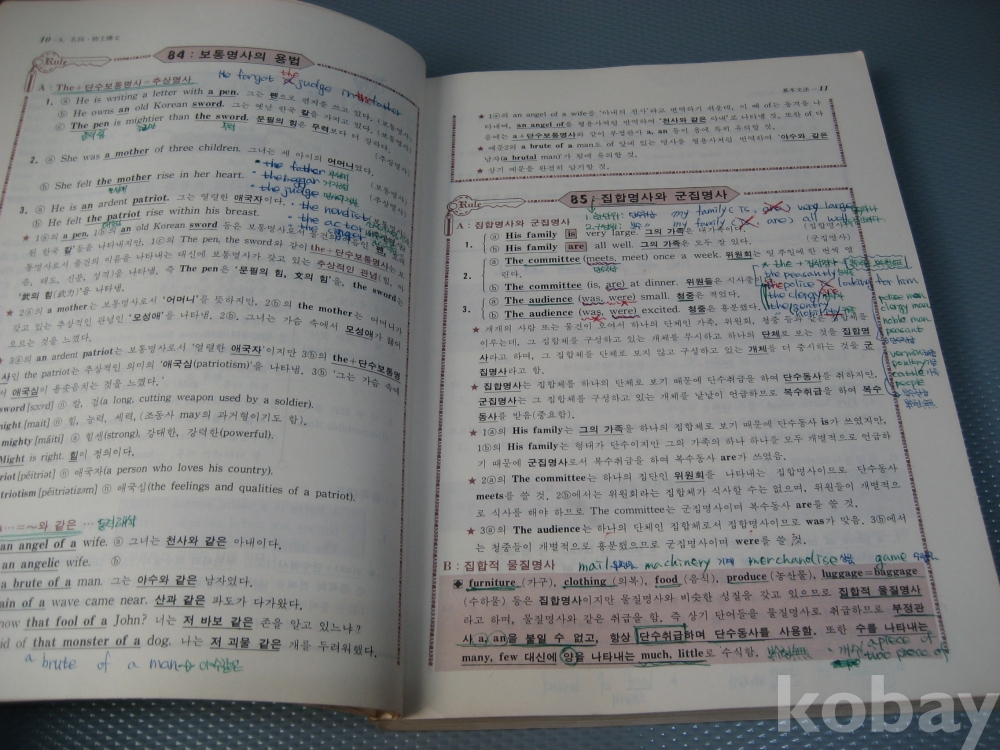 10
Rule
84 : 보통명사의 용법
He forgot the judge in the father
A : The+단수보통명사=추상명사
1. ⓐ He is writing a letter with a pen. 그는 펜으로 편지를 쓰고 있다. (보통명사)
ⓑ He owns an old Korean sword. 그는 옛날 한국 칼을 가지고 있다. (보통명사)
ⓒ The pen is mightier than the sword. 문필의 힘은 무력보다 더 강하다.
(추상명사)
2. ⓐ She was a mother of three children. 그녀는 세 아이의 어머니였다.
(보통명사)
ⓑ She felt the mother rise in her heart.
(추상명사)
the father
the beggar
the judge
3. ⓐ He is an ardent patriot. 그는 열렬한 애국자이다.
ⓑ He felt the patriot rise within his breast.
★ 1ⓐ의 a pen, 1ⓑ의 an old Korean sword 등은 보통명사로
한국 칼을 나타내지만, 1ⓒ의 The pen, the sword와 같이 the+단수보통명사는 보
통명사로서 물건의 이름을 나타내는 대신에 보통명사가 갖고 있는 추상적인 관념(힘,
용, 태도, 신분, 성격)을 나타냄, 즉 The pen은 '문필의 힘, 文의 힘'을, the sword는
'武의 힘(武力)'을 나타냄.
★ 2ⓐ의 a mother는 보통명사로서 '어머니'를 뜻하지만, 2ⓑ의 the mother는 어머니가
갖고 있는 추상적인 관념인 '모성애'를 나타냄. 2ⓑ, 그녀는 가슴 속에서 모성애가 끓어
오르는 것을 느꼈다.
★ 3ⓐ의 an ardent patriot는 보통명사로서 '열렬한 애국자'이지만 3ⓑ의 the+단수보통명
사인 the patriot는 추상적인 의미의 '애국심(patriotism)'을 나타냄. 3ⓑ '그는 가슴 속에
서 애국심이 용솟음치는 것을 느꼈다.'
sword [sɔːrd] ⓝ 칼, 검(a long, cutting weapon used by a soldier).
might [mait] ⓝ 힘, 능력, 세력, (조동사 may의 과거형이기도 함).
mighty [máiti] ⓐ 힘센(strong), 강대한, 강력한(powerful).
Might is right. 힘이 정의이다.
riot [péitriət] ⓝ 애국자(a person who loves his country).
triotism [péitriətizəm] ⓝ 애국심(the feelings and qualities of a patriot).
a…=~와 같은 …
an angel of a wife. ⓐ 그녀는 천사와 같은 아내이다.
an angelic wife. ⓑ
a brute of a man. 그는 야수와 같은 남자였다.
ain of a wave came near. 산과 같은 파도가 다가왔다.
now that fool of a John? 너는 저 바보 같은 존을 알고 있느냐?
id of that monster of a dog. 나는 저 괴물 같은 개를 두려워했다.
a brute of a man
基本文法 11
★ 1ⓐ의 an angel of a wife를 '아내의 천사'라고 번역하기 쉬운데, 이 때 of는 동격을 나
타내며, an angel of를 형용사처럼 번역하여 '천사와 같은 아내'로 나타낼 것. 또한 of 다
음에는 a+단수보통명사와 같이 부정관사 a, an 등이 옴에 특히 유의할 것.
★ 예문2의 a brute of a man도 of 앞에 있는 명사를 형용사처럼 번역하여 '야수와 같은
남자(a brutal man)'가 됨에 유의할 것.
★ 상기 예문을 완전히 암기할 것.
Rule
85 : 집합명사와 군집명사
A : 집합명사와 군집명사
my family (is, are) very large
my family ( are) all well
1. ⓐ His family is very large. 그의 가족은 대가족이다.
ⓑ His family are all well. 그의 가족은 모두 잘 있다. (군집명사)
2. ⓐ The committee (meets, meet) once a week. 위원회는 일 주일에 한 번씩 열
린다.
ⓑ The committee (is, are) at dinner. 위원들은 식사중이다.
3. ⓐ The audience (was, were) small. 청중은 적었다.
ⓑ The audience (was, were) excited. 청중은 흥분했다.
the peasantry
the police looking for him
the clergy
the gentry
the nobility
police man
clergy
noble man
peasant
vermin
poultry
cattle
people
★ 개개의 사람 또는 물건이 모여서 하나의 단체인 가족, 위원회, 청중
이루는데, 그 집합체를 구성하고 있는 개체를 무시하고 하나의 단체로 보는 것을 집합명
사라고 하며, 그 집합체를 단체로 보지 않고 구성하고 있는 개체를 더 중시하는 것을 군
집명사라고 함.
★ 집합명사는 집합체를 하나의 단체로 보기 때문에 단수취급을 하여 단수동사를 취하지만,
군집명사는 그 집합체를 구성하고 있는 개체를 낱낱이 언급하므로 복수취급을 하여 복수
동사를 받음(중요함).
★ 1ⓐ의 His family는 그의 가족을 하나의 집합체로 보기 때문에 단수동사 is가 쓰였지만,
1ⓑ의 His family는 형태가 단수이지만 그의 가족의 하나 하나를 모두 개별적으로 언급하
기 때문에 군집명사로서 복수취급을 하여 복수동사 are가 쓰였음.
★ 2ⓐ의 The committee는 하나의 집단인 위원회를 나타내는 집합명사이므로 단수동사
meets를 쓸 것. 2ⓑ에서는 위원회라는 집합체가 식사할 수는 없으며, 위원들이 개별적으
로 식사를 해야 하므로 The committee는 군집명사이며 복수동사 are를 쓸 것.
★ 3ⓐ의 The audience는 하나의 단체인 집합체로서 집합명사이므로 was가 맞음. 3ⓑ에서
는 청중들이 개별적으로 흥분했으므로 군집명사이며 were를 쓸 것.
B : 집합적 물질명사
mail machinery 기계 merchandise game
furniture (가구), clothing (의복), food (음식), produce (농산물), luggage=baggage
(수하물) 등은 집합명사이지만 물질명사와 비슷한 성질을 갖고 있으므로 집합적 물질명사
라고 하며, 물질명사와 같은 취급을 함. 즉 상기 단어들을 물질명사로 취급하므로 부정관
사 a, an을 붙일 수 없고, 항상 단수취급하며 단수동사를 사용함. 또한 수를 나타내는
many, few 대신에 양을 나타내는 much, little로 수식함.
a piece of
two piece of
kobay